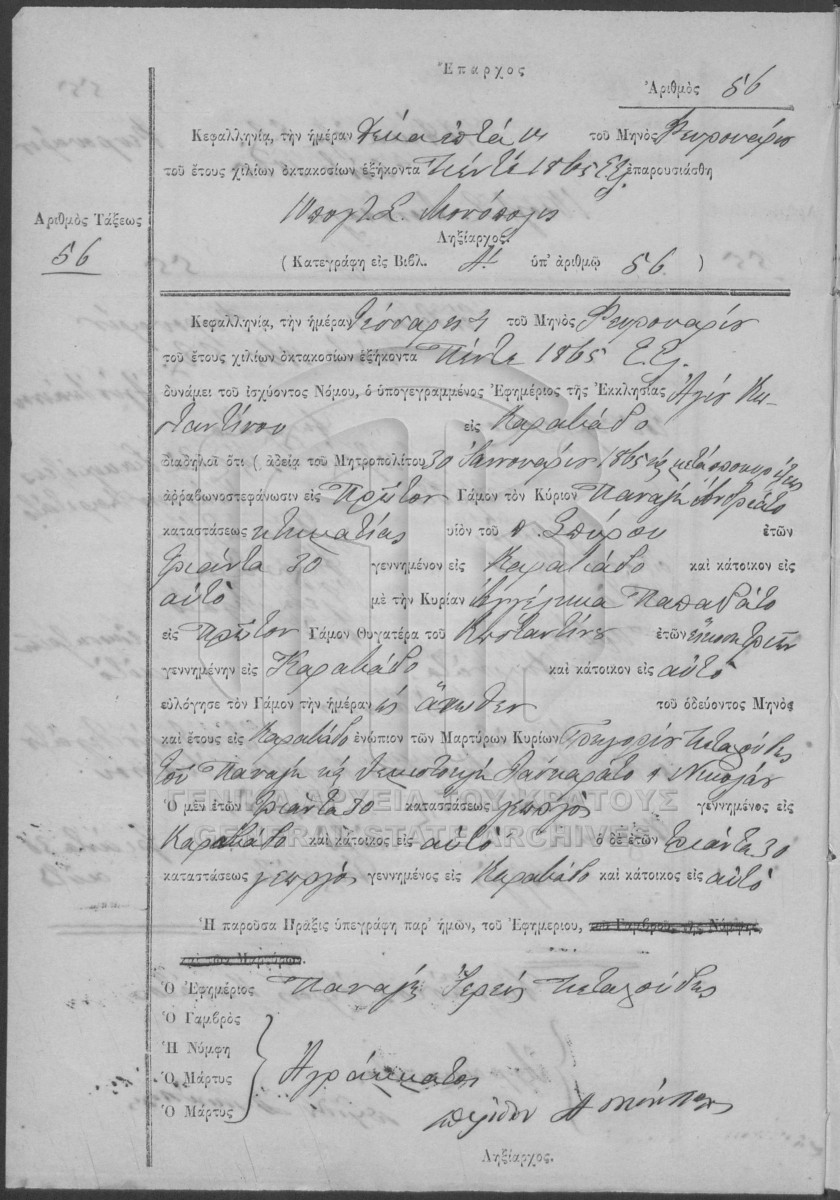 Ἔπαρχος
Ἀριθμὸς 56
Κεφαλληνία, τὴν ἡμέραν Δέκα ἑπτά 17 τοῦ Μηνὸς Φευρουαρίου
τοῦ ἔτους χιλίων ὀκτακοσίων ἑξήκοντα πέντε 1865 Ε.Ε. ἐπαρουσιάσθη
Ληξίαρχος.
Ἀριθμὸς Τάξεως
56
( Κατεγράφη εἰς Βιβλ. Α! ὑπ' ἀριθμῷ 56 )
Κεφαλληνία, τὴν ἡμέραν τέσσαρες 4 τοῦ Μηνὸς Φευρουαρίου
τοῦ ἔτους χιλίων ὀκτακοσίων ἑξήκοντα πέντε 1865 Ε.Ε.
δυνάμει τοῦ ἰσχύοντος Νόμου, ὁ ὑπογεγραμμένος Ἐφημέριος τῆς Ἐκκλησίας Ἁγίου Κω-
σταντίνου εἰς Καραβάδο
διαδηλοῖ ὅτι ( ἀδείᾳ τοῦ Μητροπολίτου 30 Ἰαννουαρίου 1865
ἀρραβωνοστεφάνωσιν εἰς Πρῶτον Γάμον τὸν Κύριον Παναγῆ
καταστάσεως κτηματίας υἱὸν τοῦ π. Σπύρου ἐτῶν
τριάντα 30 γεννημένον εἰς Καραβάδο καὶ κάτοικον εἰς
αὐτὸ μὲ τὴν Κυρίαν Ἀγγέλικα Παπαδάτο
εἰς Πρῶτον Γάμον Θυγατέρα τοῦ Κωσταντίνου ἐτῶν εἴκοσι τριῶν
γεννημένην εἰς Καραβάδο καὶ κάτοικον εἰς αὐτὸ
εὐλόγησε τὸν Γάμον τὴν ἡμέραν ὡς ἄνωθεν τοῦ ὁδεύοντος Μηνὸς
καὶ ἔτους εἰς Καραβάδο ἐνώπιον τῶν Μαρτύρων Κυρίων Γρηγορίου Πεταλούδης
τοῦ Παναγῆ κ Λασκαράτο τ Νικολάου
Ὁ μὲν ἐτῶν τριάντα 30 καταστάσεως γεωργὸς γεννημένος εἰς
ΓΕΝΙΚΑ ΑΡΧΕΙΑ ΤΟΥ ΚΡΑΤΟΥΣ
GENERAL STATE ARCHIVES
Καραβάδο καὶ κάτοικος εἰς αὐτὸ ὁ δὲ ἐτῶν τριάντα 30
καταστάσεως γεωργὸς γεννημένος εἰς Καραβάδο καὶ κάτοικος εἰς αὐτὸ
Ἡ παροῦσα Πρᾶξις ὑπεγράφη παρ' ἡμῶν, τοῦ Ἐφημερίου, τοῦ Γαμβροῦ, τῆς Νύμφης,
καὶ τῶν Μαρτύρων.
Ὁ Ἐφημέριος Παναγῆς Ἱερεὺς Πεταλούδης
Ὁ Γαμβρὸς
Ἡ Νύμφη
Ὁ Μάρτυς Ἀγράμματοι
Ὁ Μάρτυς
Ληξίαρχος.